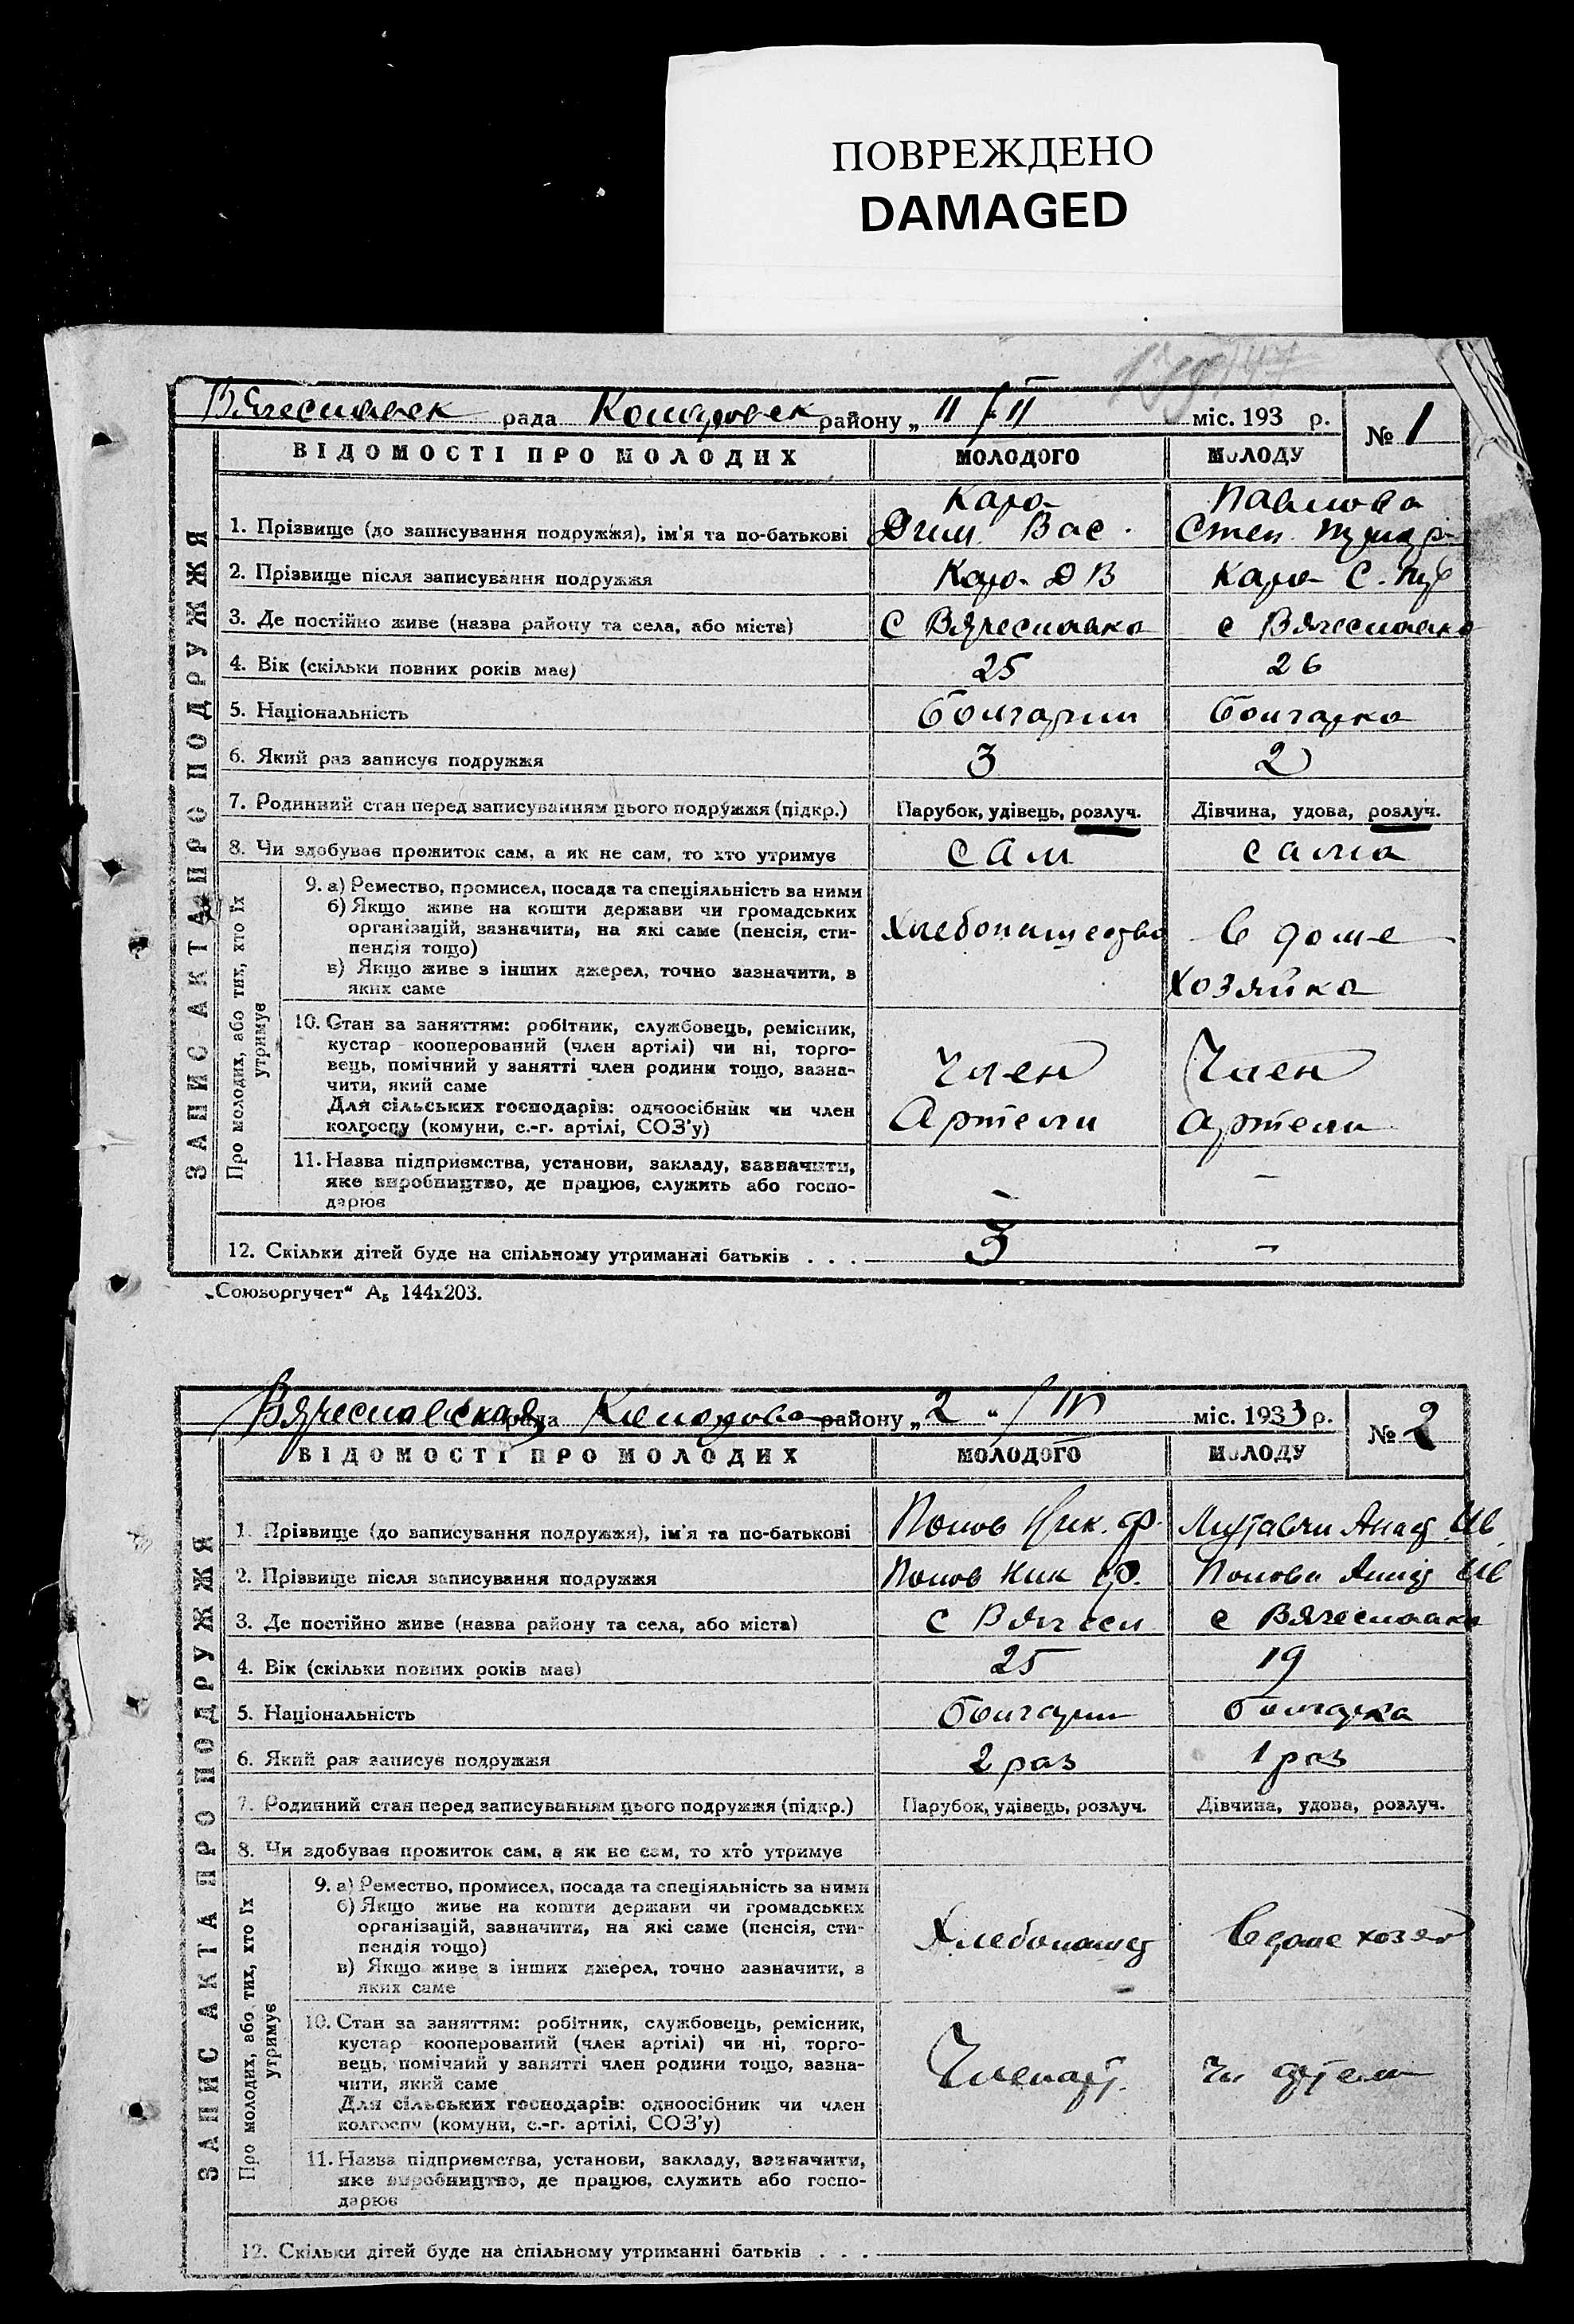 ПОВРЕЖДЕНО
DAMAGED
147
Вячеславск рада району „ 11 / II міс. 193 р.
№ 1
ВІДОМОСТІ ПРО МОЛОДИХ МОЛОДОГО МОЛОДУ
ЗАПИС АКТА ПРО ПОДРУЖЖЯ
Каро- Павлова
1. Прізвище (до записування подружжя), ім'я та по-батькові Дим. Вас. Степ.
2. Прізвище після записування подружжя Каро- Д В Каро- С.
3. Де постійно живе (назва району та села, або міста) С Вячеславка с Вячеславка
4. Вік (скільки повних років має) 25 26
5. Національність болгарин болгарка
6. Який раз записує подружжя 3 2
7. Родинний стан перед записуванням цього подружжя (підкр.) Парубок, удівець, розлуч. Дівчина, удова, розлуч.
8. Чи здобуває прожиток сам, а як не сам, то хто утримує сам сама
Про молодих, або тих, хто їх утримує
9. а) Ремество, промисел, посада та спеціяльність за ними
б) Якщо живе на кошти держави чи громадських
організацій, зазначити, на які саме (пенсія, сти-
пендія тощо)
в) Якщо живе з інших джерел, точно зазначити, в
яких саме
хлебопашество в доме
хозяйка
10. Стан за заняттям: робітник, службовець, ремісник,
кустар кооперований (член артілі) чи ні, торго-
вець, помічний у занятті член родини тощо, зазна-
чити, який саме
Для сільських господарів: одноосібник чи член
колгоспу (комуни, с.-г. артілі, СОЗ'у)
Член Член
Артели артели
11. Назва підприємства, установи, закладу, зазначити,
яке виробництво, де працює, служить або госпо-
дарює
– –
12. Скільки дітей буде на спільному утриманні батьків . . . 3 –
„Союзоргучет“ А₅ 144х203.
Вячеславская рада району „ 2 “ / III міс. 1933 р.
№ 2
ВІДОМОСТІ ПРО МОЛОДИХ МОЛОДОГО МОЛОДУ
ЗАПИС АКТА ПРО ПОДРУЖЖЯ
1. Прізвище (до записування подружжя), ім'я та по-батькові Попов Ник. Ф. Ив.
2. Прізвище після записування подружжя Попов Ник Ф. Попова Ив
3. Де постійно живе (назва району та села, або міста) с Вячесл с Вячеславка
4. Вік (скільки повних років має) 25 19
5. Національність болгарин болгарка
6. Який раз записує подружжя 2 раз 1 раз
7. Родинний стан перед записуванням цього подружжя (підкр.) Парубок, удівець, розлуч. Дівчина, удова, розлуч.
8. Чи здобуває прожиток сам, а як не сам, то хто утримує
Про молодих, або тих, хто їх утримує
9. а) Ремество, промисел, посада та спеціяльність за ними
б) Якщо живе на кошти держави чи громадських
організацій, зазначити, на які саме (пенсія, сти-
пендія тощо)
в) Якщо живе з інших джерел, точно зазначити, з
яких саме
Хлебопашец в доме хозяй
10. Стан за заняттям: робітник, службовець, ремісник,
кустар кооперований (член артілі) чи ні, торго-
вець, помічний у занятті член родини тощо, зазна-
чити, який саме
Для сільських господарів: одноосібник чи член
колгоспу (комуни, с.-г. артілі, СОЗ'у)
Член арт. Чл артели
11. Назва підприємства, установи, закладу, зазначити,
яке виробництво, де працює, служить або госпо-
дарює
12. Скільки дітей буде на спільному утриманні батьків . . .